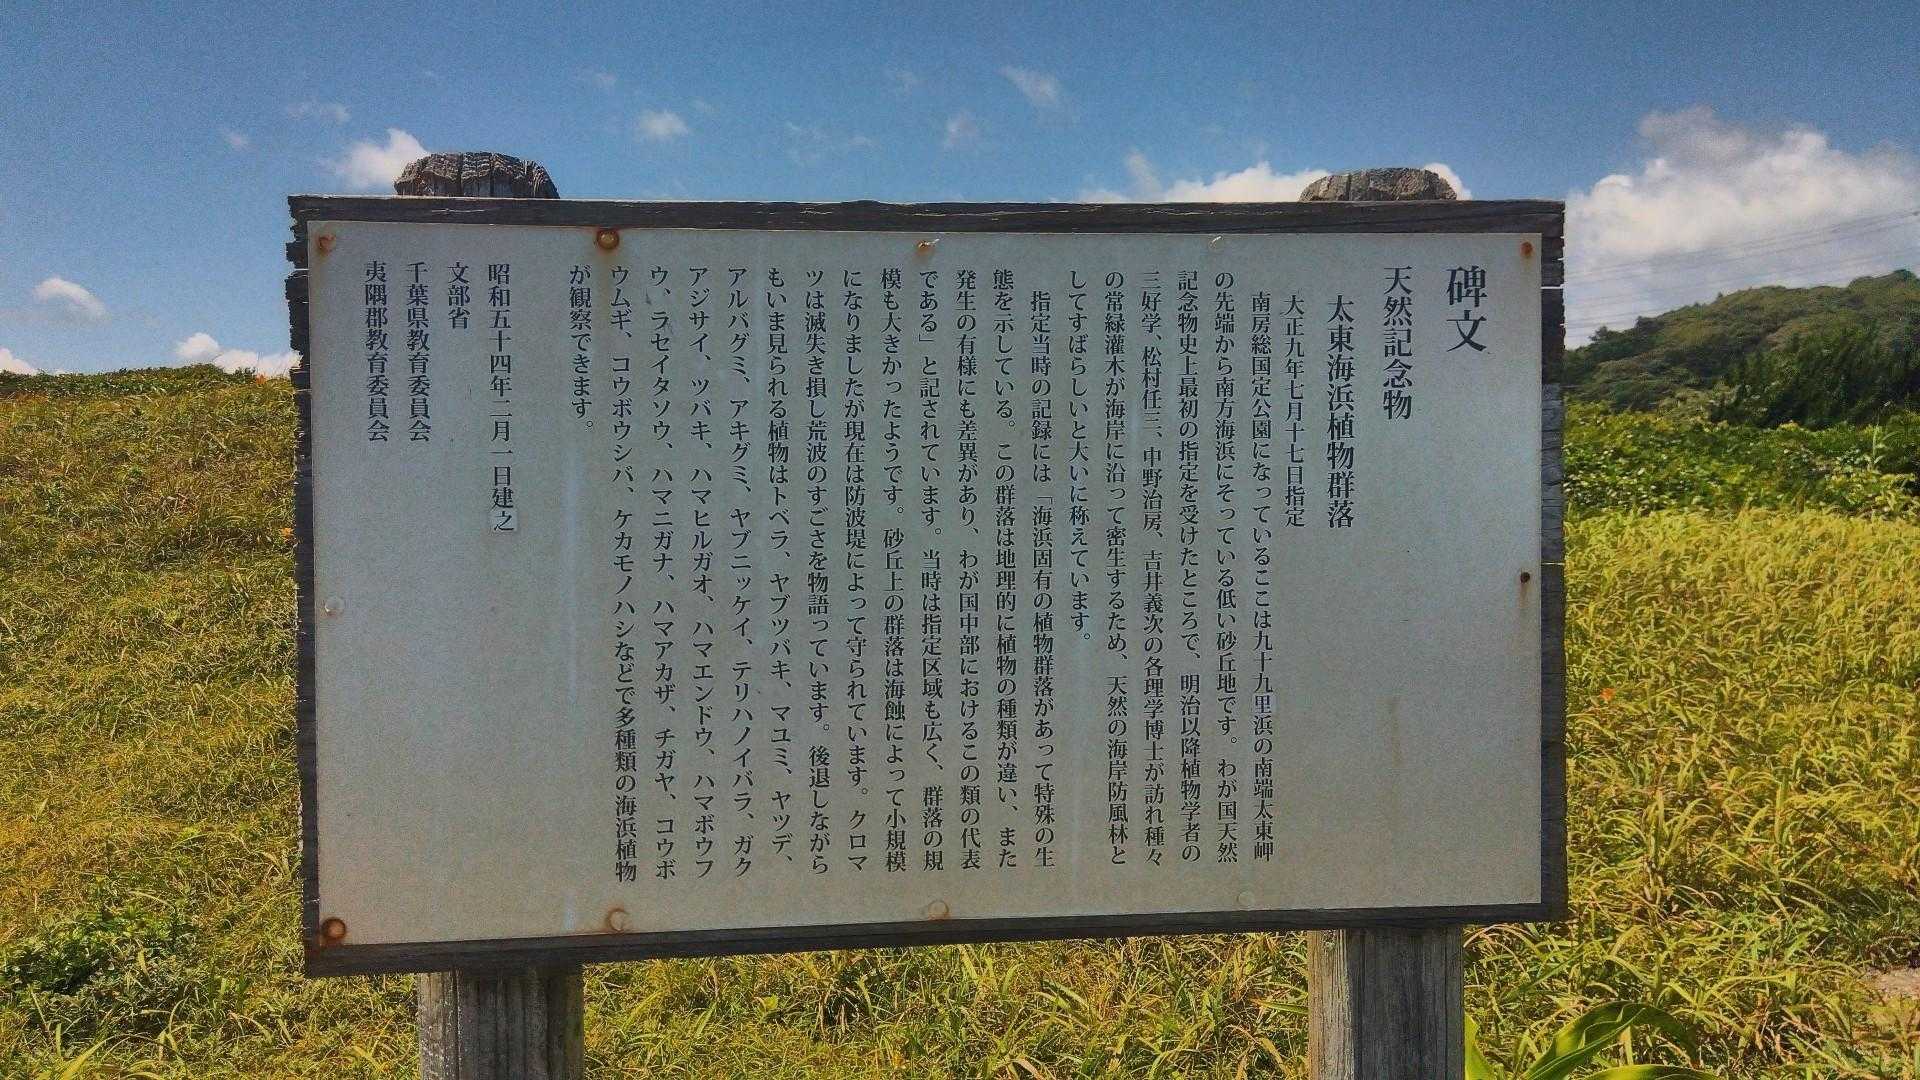 碑文
天然記念物
太東海浜植物群落
大正九年七月十七日指定
南房総国定公園になっているここは九十九里浜の南端太東岬
の先端から南方海浜にそっている低い砂丘地です。わが国天然
記念物史上最初の指定を受けたところで、明治以降植物学者の
三好学、松村任三、中野治房、吉井義次の各理学博士が訪れ種々
の常緑灌木が海岸に沿って密生するため、天然の海岸防風林と
してすばらしいと大いに称えています。
指定当時の記録には「海浜固有の植物群落があって特殊の生
態を示している。この群落は地理的に植物の種類が違い、また
発生の有様にも差異があり、わが国中部におけるこの類の代表
である」と記されています。当時は指定区域も広く、群落の規
模も大きかったようです。砂丘上の群落は海蝕によって小規模
になりましたが現在は防波堤によって守られています。クロマ
ツは滅失き損し荒波のすごさを物語っています。後退しながら
もいま見られる植物はトベラ、ヤブツバキ、マユミ、ヤツデ、
アルバグミ、アキグミ、ヤブニッケイ、テリハノイバラ、ガク
アジサイ、ツバキ、ハマヒルガオ、ハマエンドウ、ハマボウフ
ウ、ラセイタソウ、ハマニガナ、ハマアカザ、チガヤ、コウボ
ウムギ、コウボウシバ、ケカモノハシなどで多種類の海浜植物
が観察できます。
昭和五十四年二月一日建之
文部省
千葉県教育委員会
夷隅郡教育委員会